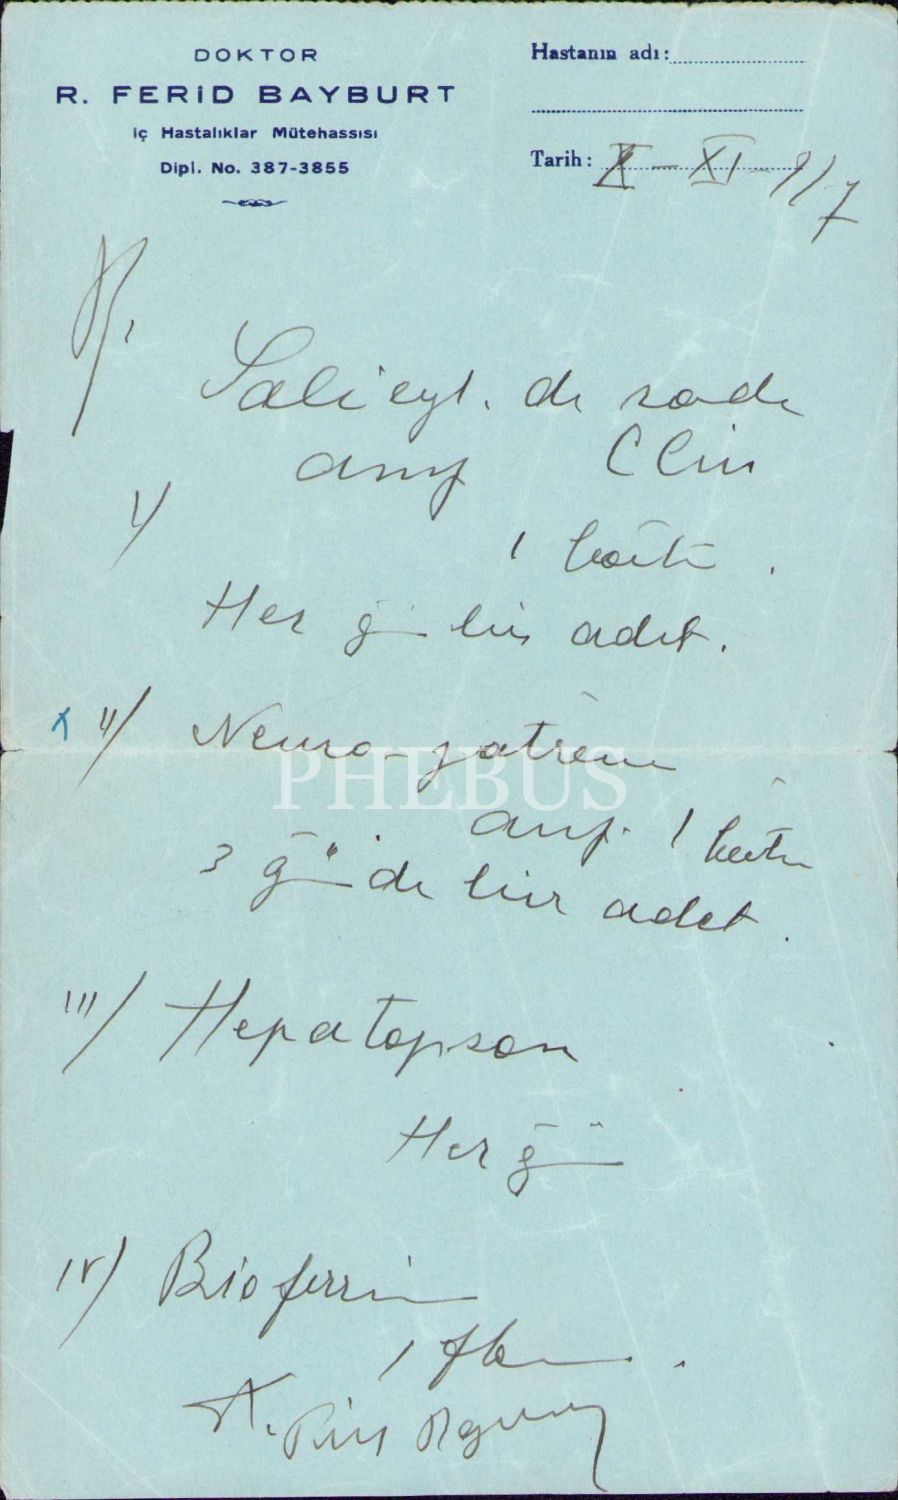 DOKTOR
R. FERİD BAYBURT
İç Hastalıklar Mütehassısı
Dipl. No. 387-3855
Hastanın adı:
Tarih: X - XI -
Salicyl. de soude
amp Clin
I/
1 boite.
Her g bir adet.
x II/ Neuro-yatren
PHEBUS
amp. 1 boite
3 günde bir adet.
III/ Hepatopson
Her gün
IV/ Bioferrin
1 fl